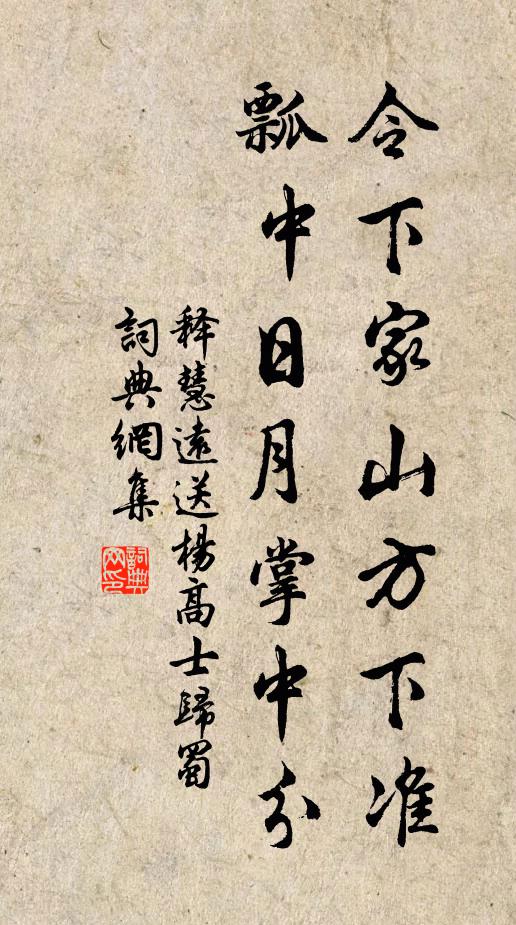 令下家山方下准
瓢中日月掌中分
释慧遠送楊高士歸蜀
詞典網集
詞典网印